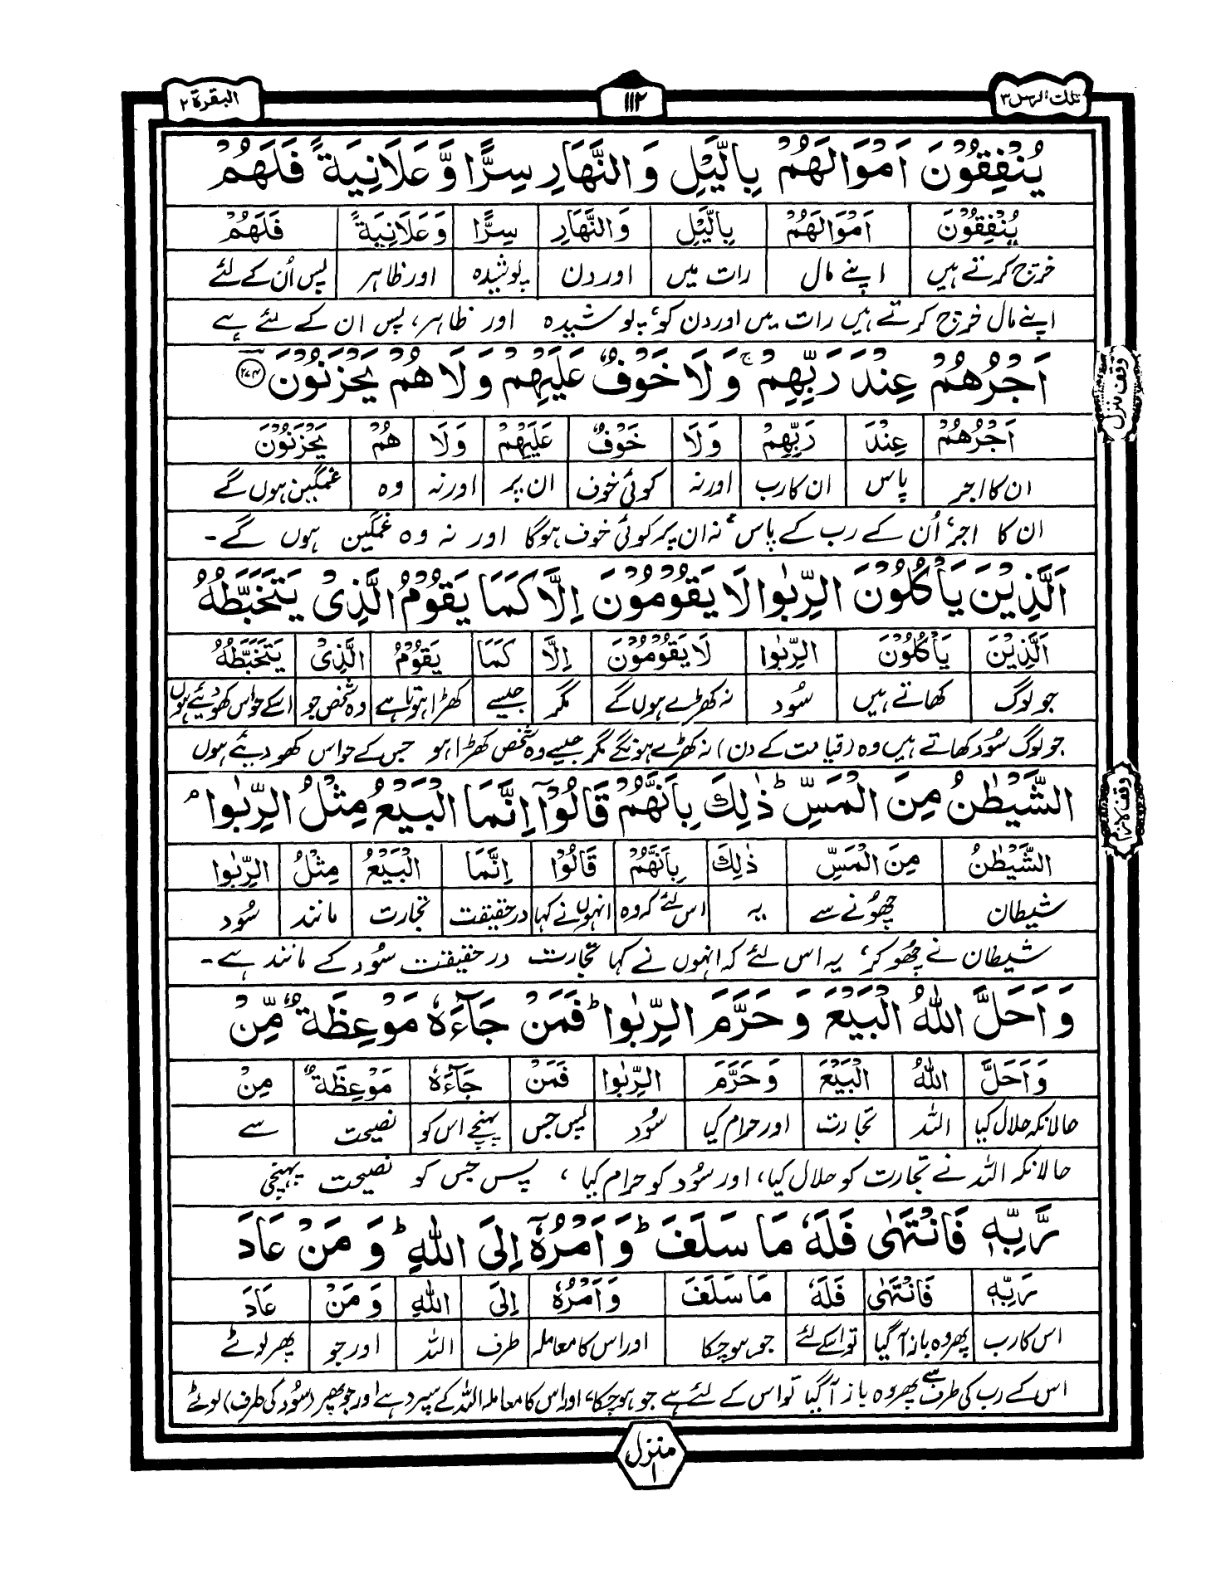 تلك الرسل ٣
١١٢
البقرة ٢
يُنْفِقُوْنَ اَمْوَالَهُمْ بِالَّيْلِ وَالنَّهَارِ سِرًّا وَّ عَلَانِيَةً فَلَهُمْ
يُنْفِقُوْنَ اَمْوَالَهُمْ بِالَّيْلِ وَالنَّهَارِ سِرًّا وَّعَلَانِيَةً فَلَهُمْ
خرچ کرتے ہیں اپنے مال رات میں اور دن پوشیدہ اور ظاہر پس اُن کے لئے
اپنے مال خرچ کرتے ہیں رات میں اور دن کو، پوشیدہ اور ظاہر، پس ان کے لئے ہے
اَجْرُهُمْ عِنْدَ رَبِّهِمْ ۚ وَلَا خَوْفٌ عَلَيْهِمْ وَلَا هُمْ يَحْزَنُوْنَ ﴿٢٧٤﴾
وقف منزل
اَجْرُهُمْ عِنْدَ رَبِّهِمْ وَلَا خَوْفٌ عَلَيْهِمْ وَلَا هُمْ يَحْزَنُوْنَ
ان کا اجر پاس ان کا رب اور نہ کوئی خوف ان پر اور نہ وہ غمگین ہوں گے
ان کا اجر اُن کے رب کے پاس، نہ ان پر کوئی خوف ہوگا اور نہ وہ غمگین ہوں گے۔
اَلَّذِيْنَ يَاْكُلُوْنَ الرِّبٰوا لَا يَقُوْمُوْنَ اِلَّا كَمَا يَقُوْمُ الَّذِىْ يَتَخَبَّطُهُ
اَلَّذِيْنَ يَاْكُلُوْنَ الرِّبٰوا لَا يَقُوْمُوْنَ اِلَّا كَمَا يَقُوْمُ الَّذِىْ يَتَخَبَّطُهُ
جو لوگ کھاتے ہیں سُود نہ کھڑے ہوں گے مگر جیسے کھڑا ہوتا ہے وہ شخص جو اسکے حواس کھو دیئے ہوں
جو لوگ سُود کھاتے ہیں وہ (قیامت کے دن) نہ کھڑے ہونگے مگر جیسے وہ شخص کھڑا ہو جس کے حواس کھو دیئے ہوں
الشَّيْطٰنُ مِنَ الْمَسِّ ؕ ذٰلِكَ بِاَنَّهُمْ قَالُوْٓا اِنَّمَا الْبَيْعُ مِثْلُ الرِّبٰوا ۘ
وقف لازم
الشَّيْطٰنُ مِنَ الْمَسِّ ذٰلِكَ بِاَنَّهُمْ قَالُوْٓا اِنَّمَا الْبَيْعُ مِثْلُ الرِّبٰوا
شیطان چھونے سے یہ اس لئے کہ وہ انہوں نے کہا درحقیقت تجارت مانند سُود
شیطان نے چھو کر، یہ اس لئے کہ انہوں نے کہا تجارت درحقیقت سُود کے مانند ہے۔
وَ اَحَلَّ اللّٰهُ الْبَيْعَ وَ حَرَّمَ الرِّبٰوا ؕ فَمَنْ جَآءَهٗ مَوْعِظَةٌ مِّنْ
وَ اَحَلَّ اللّٰهُ الْبَيْعَ وَ حَرَّمَ الرِّبٰوا فَمَنْ جَآءَهٗ مَوْعِظَةٌ مِنْ
حالانکہ حلال کیا اللہ تجارت اور حرام کیا سُود پس جس پہنچے اس کو نصیحت سے
حالانکہ اللہ نے تجارت کو حلال کیا، اور سُود کو حرام کیا، پس جس کو نصیحت پہنچی
رَّبِّهٖ فَانْتَهٰى فَلَهٗ مَا سَلَفَ ؕ وَ اَمْرُهٗٓ اِلَى اللّٰهِ ؕ وَ مَنْ عَادَ
رَبِّهٖ فَانْتَهٰى فَلَهٗ مَا سَلَفَ وَ اَمْرُهٗٓ اِلَى اللّٰهِ وَ مَنْ عَادَ
اس کا رب پھر وہ باز آگیا تو اسکے لئے جو ہوچکا اور اس کا معاملہ طرف اللہ اور جو پھر لوٹے
اس کے رب کی طرف سے پھر وہ باز آگیا تو اس کے لئے ہے جو ہو چکا، اور اس کا معاملہ اللہ کے سپرد ہے اور جو پھر (سُود کی طرف) لوٹے
منزل ١